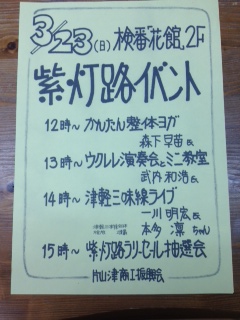 3/23(日)検番花館。2F
紫灯路イベント
12時～かんたん整体ヨガ
森下早苗氏
13時～ウクレレ演奏会とミニ教室
武内和浩氏
14時～津軽三味線ライブ
一川明宏氏
本多凛ちゃん
15時～紫灯路ラリーセール抽選会
片山津商工振興会